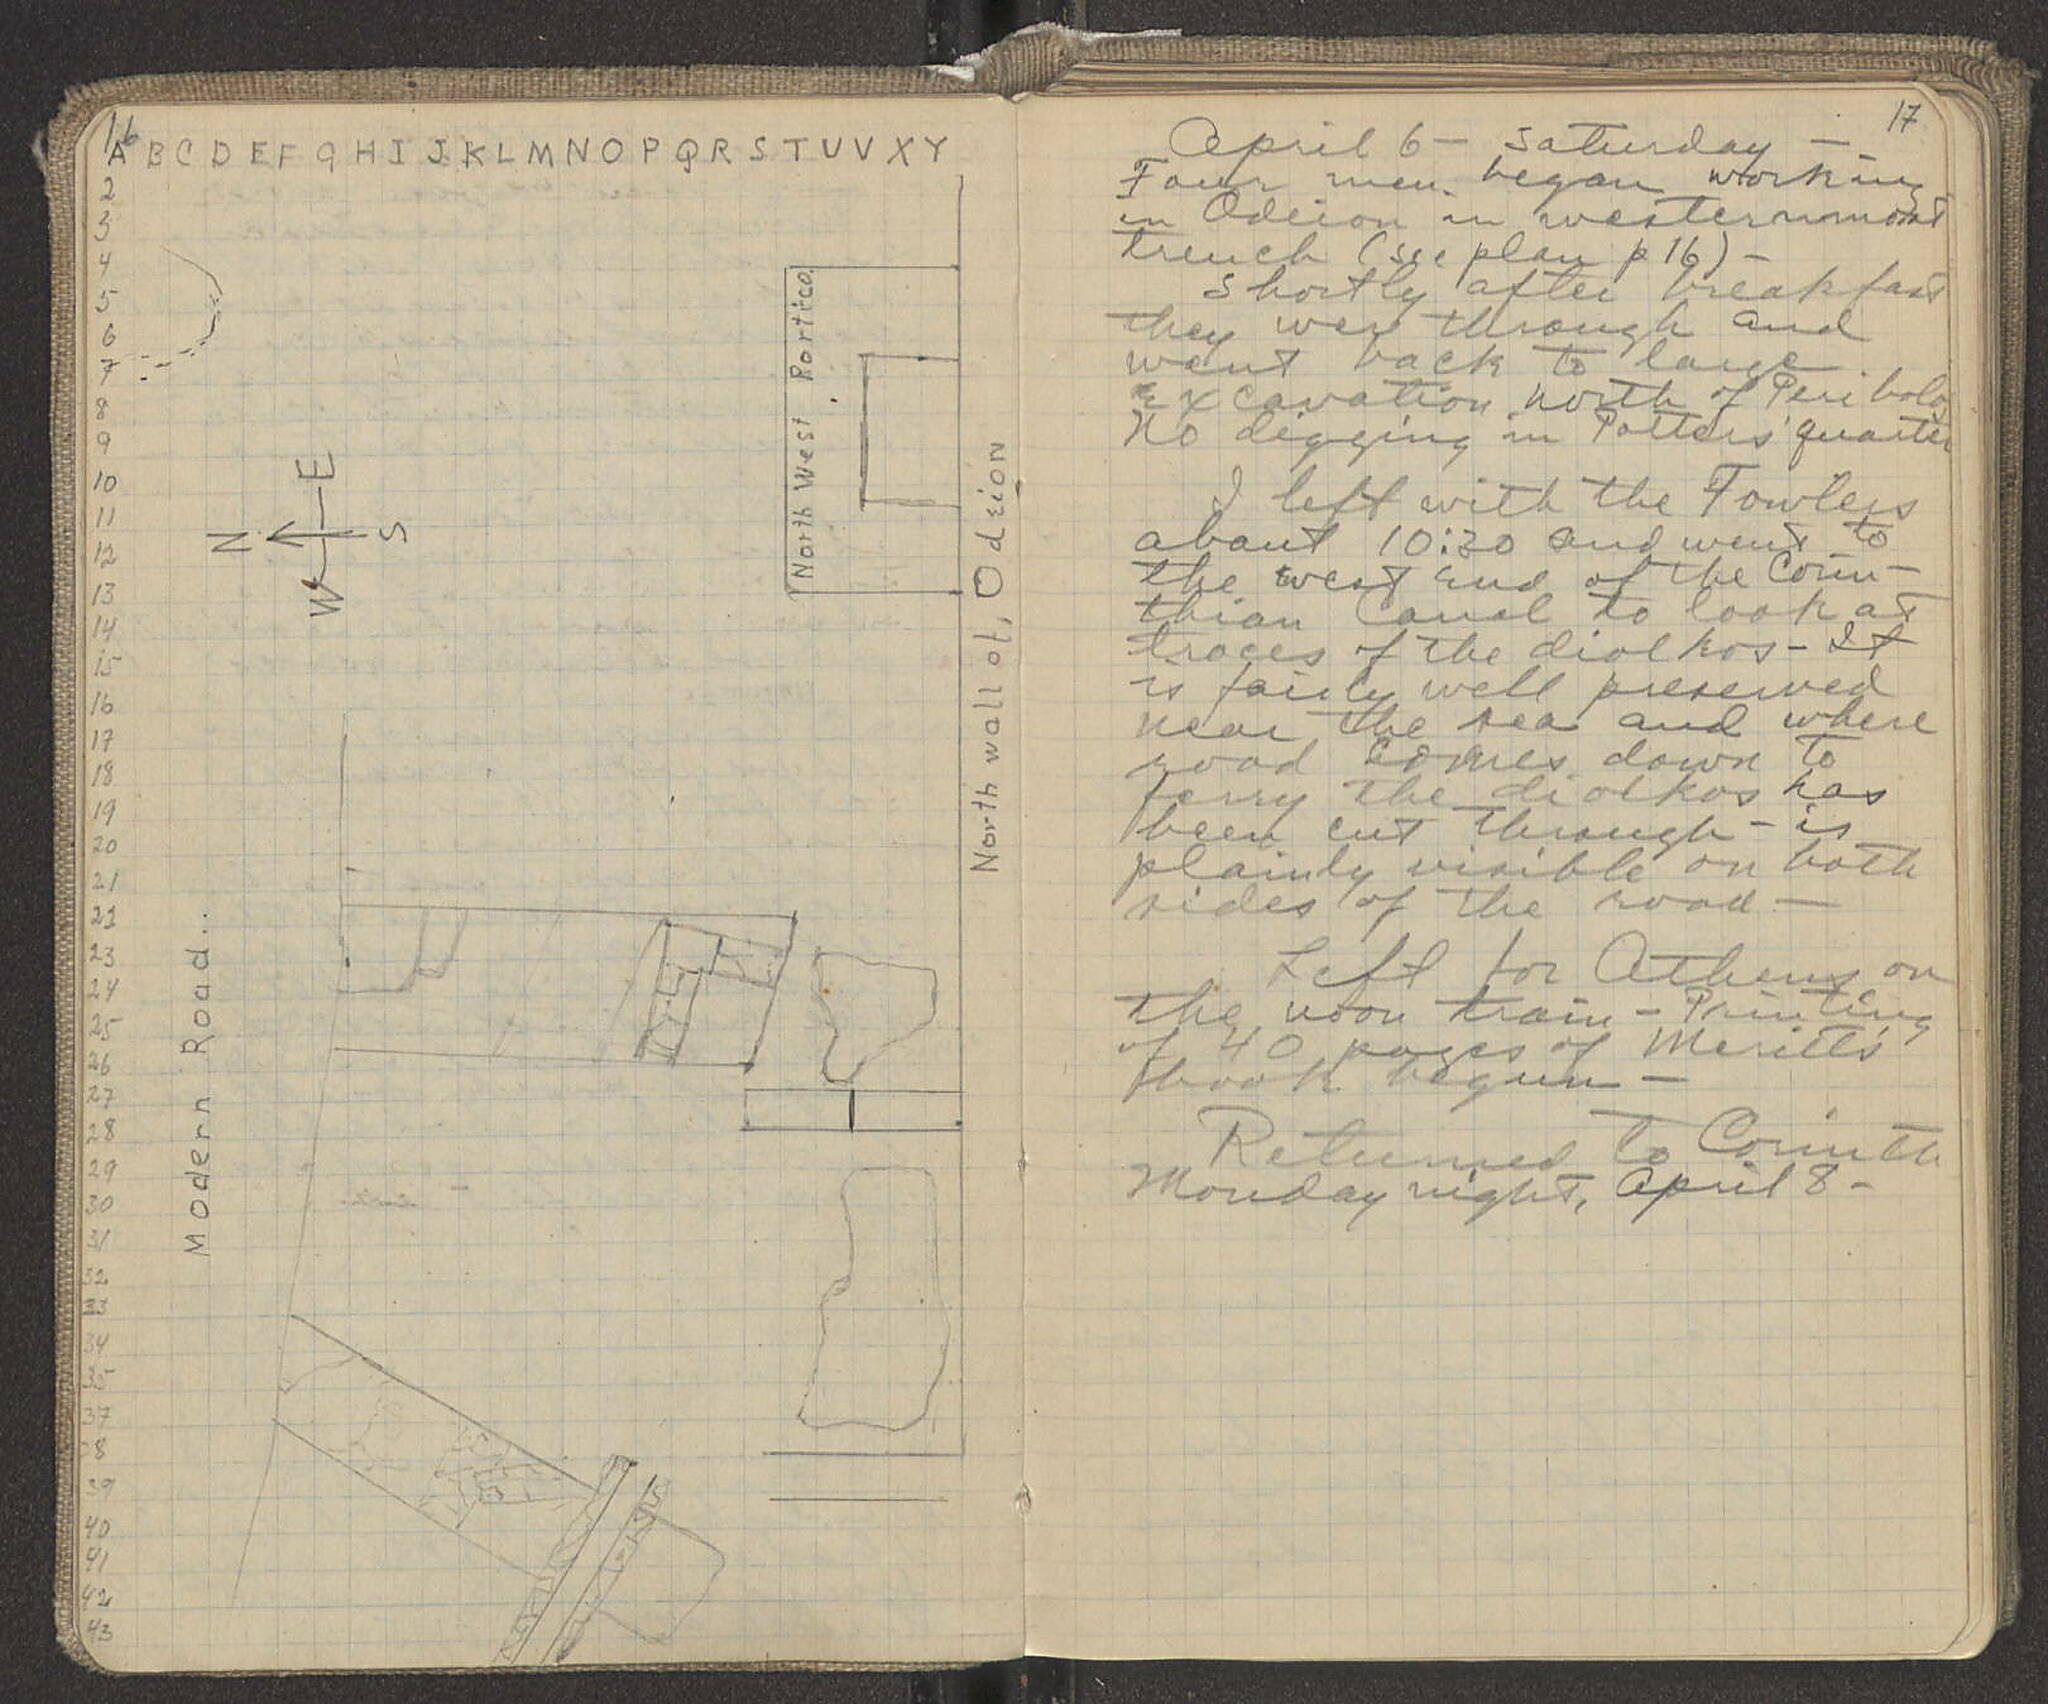 16
A B C D E F G H I J K L M N O P Q R S T U V X Y
2
3
4
5
6
7
8
9
10
11
12
13
14
15
16
17
18
19
20
21
21
23
24
25
26
27
28
29
30
31
32
33
34
35
37
8
39
40
41
42
43
N
E
S
W
North West Portico
North wall of, Odeion
Modern Road.
17
April 6 - Saturday -
Four men began working
in Odeion in westernmost
trench (see plan p 16) -
Shortly after breakfast
they were through and
went back to large
excavation north of Peribolos
No digging in Potters' quarter
I left with the Fowlers
about 10:30 and went to
the west end of the Corin-
thian Canal to look at
traces of the diolkos - It
is fairly well preserved
near the sea and where
road comes down to
ferry the diolkos has
been cut through - is
plainly visible on both
sides of the road -
Left for Athens on
the noon train - Printing
of 40 pages of Meritt's
book begun -
Returned to Corinth
Monday night, April 8 -